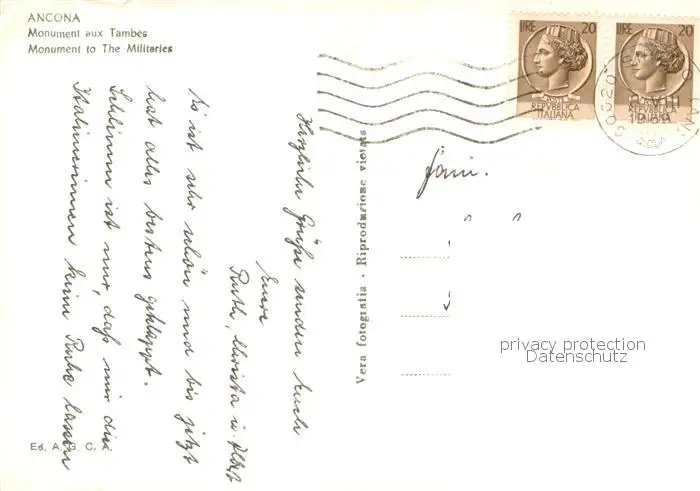 ANCONA
Monument aux Tambés
Monument to The Militaries
Es ist sehr schön und bis jetzt
hat alles bestens geklappt.
Schlimm ist nur, daß mir die
Italienerinnen keine Ruhe lassen
Herzliche Grüße senden Euch
Eure
Ruth, Christa u.
Vera fotografia - Riproduzione vietata
Ed. A. G. C. A.
LIRE 20
REPVBBLICA
ITALIANA
LIRE 20
REPVBBLICA
ITALIANA
Fam.
privacy protection
Datenschutz